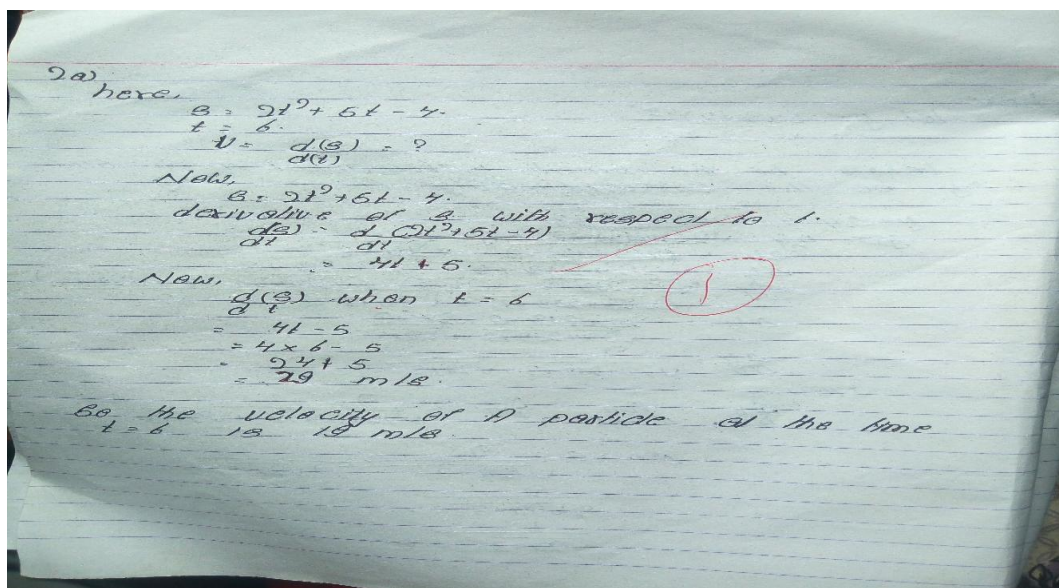 2a)
here,
s = 2t² + 5t - 4.
t = 6.
v = d(s)/d(t) = ?
Now,
s = 2t² + 5t - 4.
derivative of s with respect to t.
d(s)/dt = d/dt (2t² + 5t - 4)
= 4t + 5.
1
Now,
d(s)/dt when t = 6
= 4t - 5
= 4 × 6 - 5
= 24 + 5
= 29 m/s.
So the velocity of A particle at the time
t = 6 is 19 m/s.